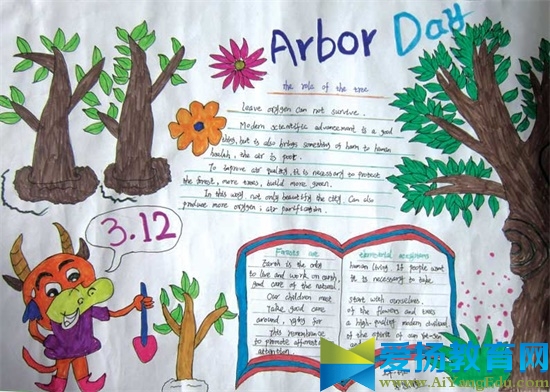 Arbor Day
the role of the tree
leave oxygen can not survive.
Modern scientific advancement is a good
thing, but is also brings something of harm to human
health, the air is poor.
To improve air quality, it is necessary to protect
the forest, more trees, build more green.
In this way, not only beautify the city, Can also
produce more oxygen, air purification.
3.12
Forests are
Earth is the only
to live and work on earth,
good care of the natural
Our children must
Take good care
around, vying for
this remembrance
to promote
attention.
human living. If people want
it is necessary to take
start with ourselves.
of the flowers and trees
a high-quality modern
of the spirit of
爱扬教育网
www.AiYangEdu.com